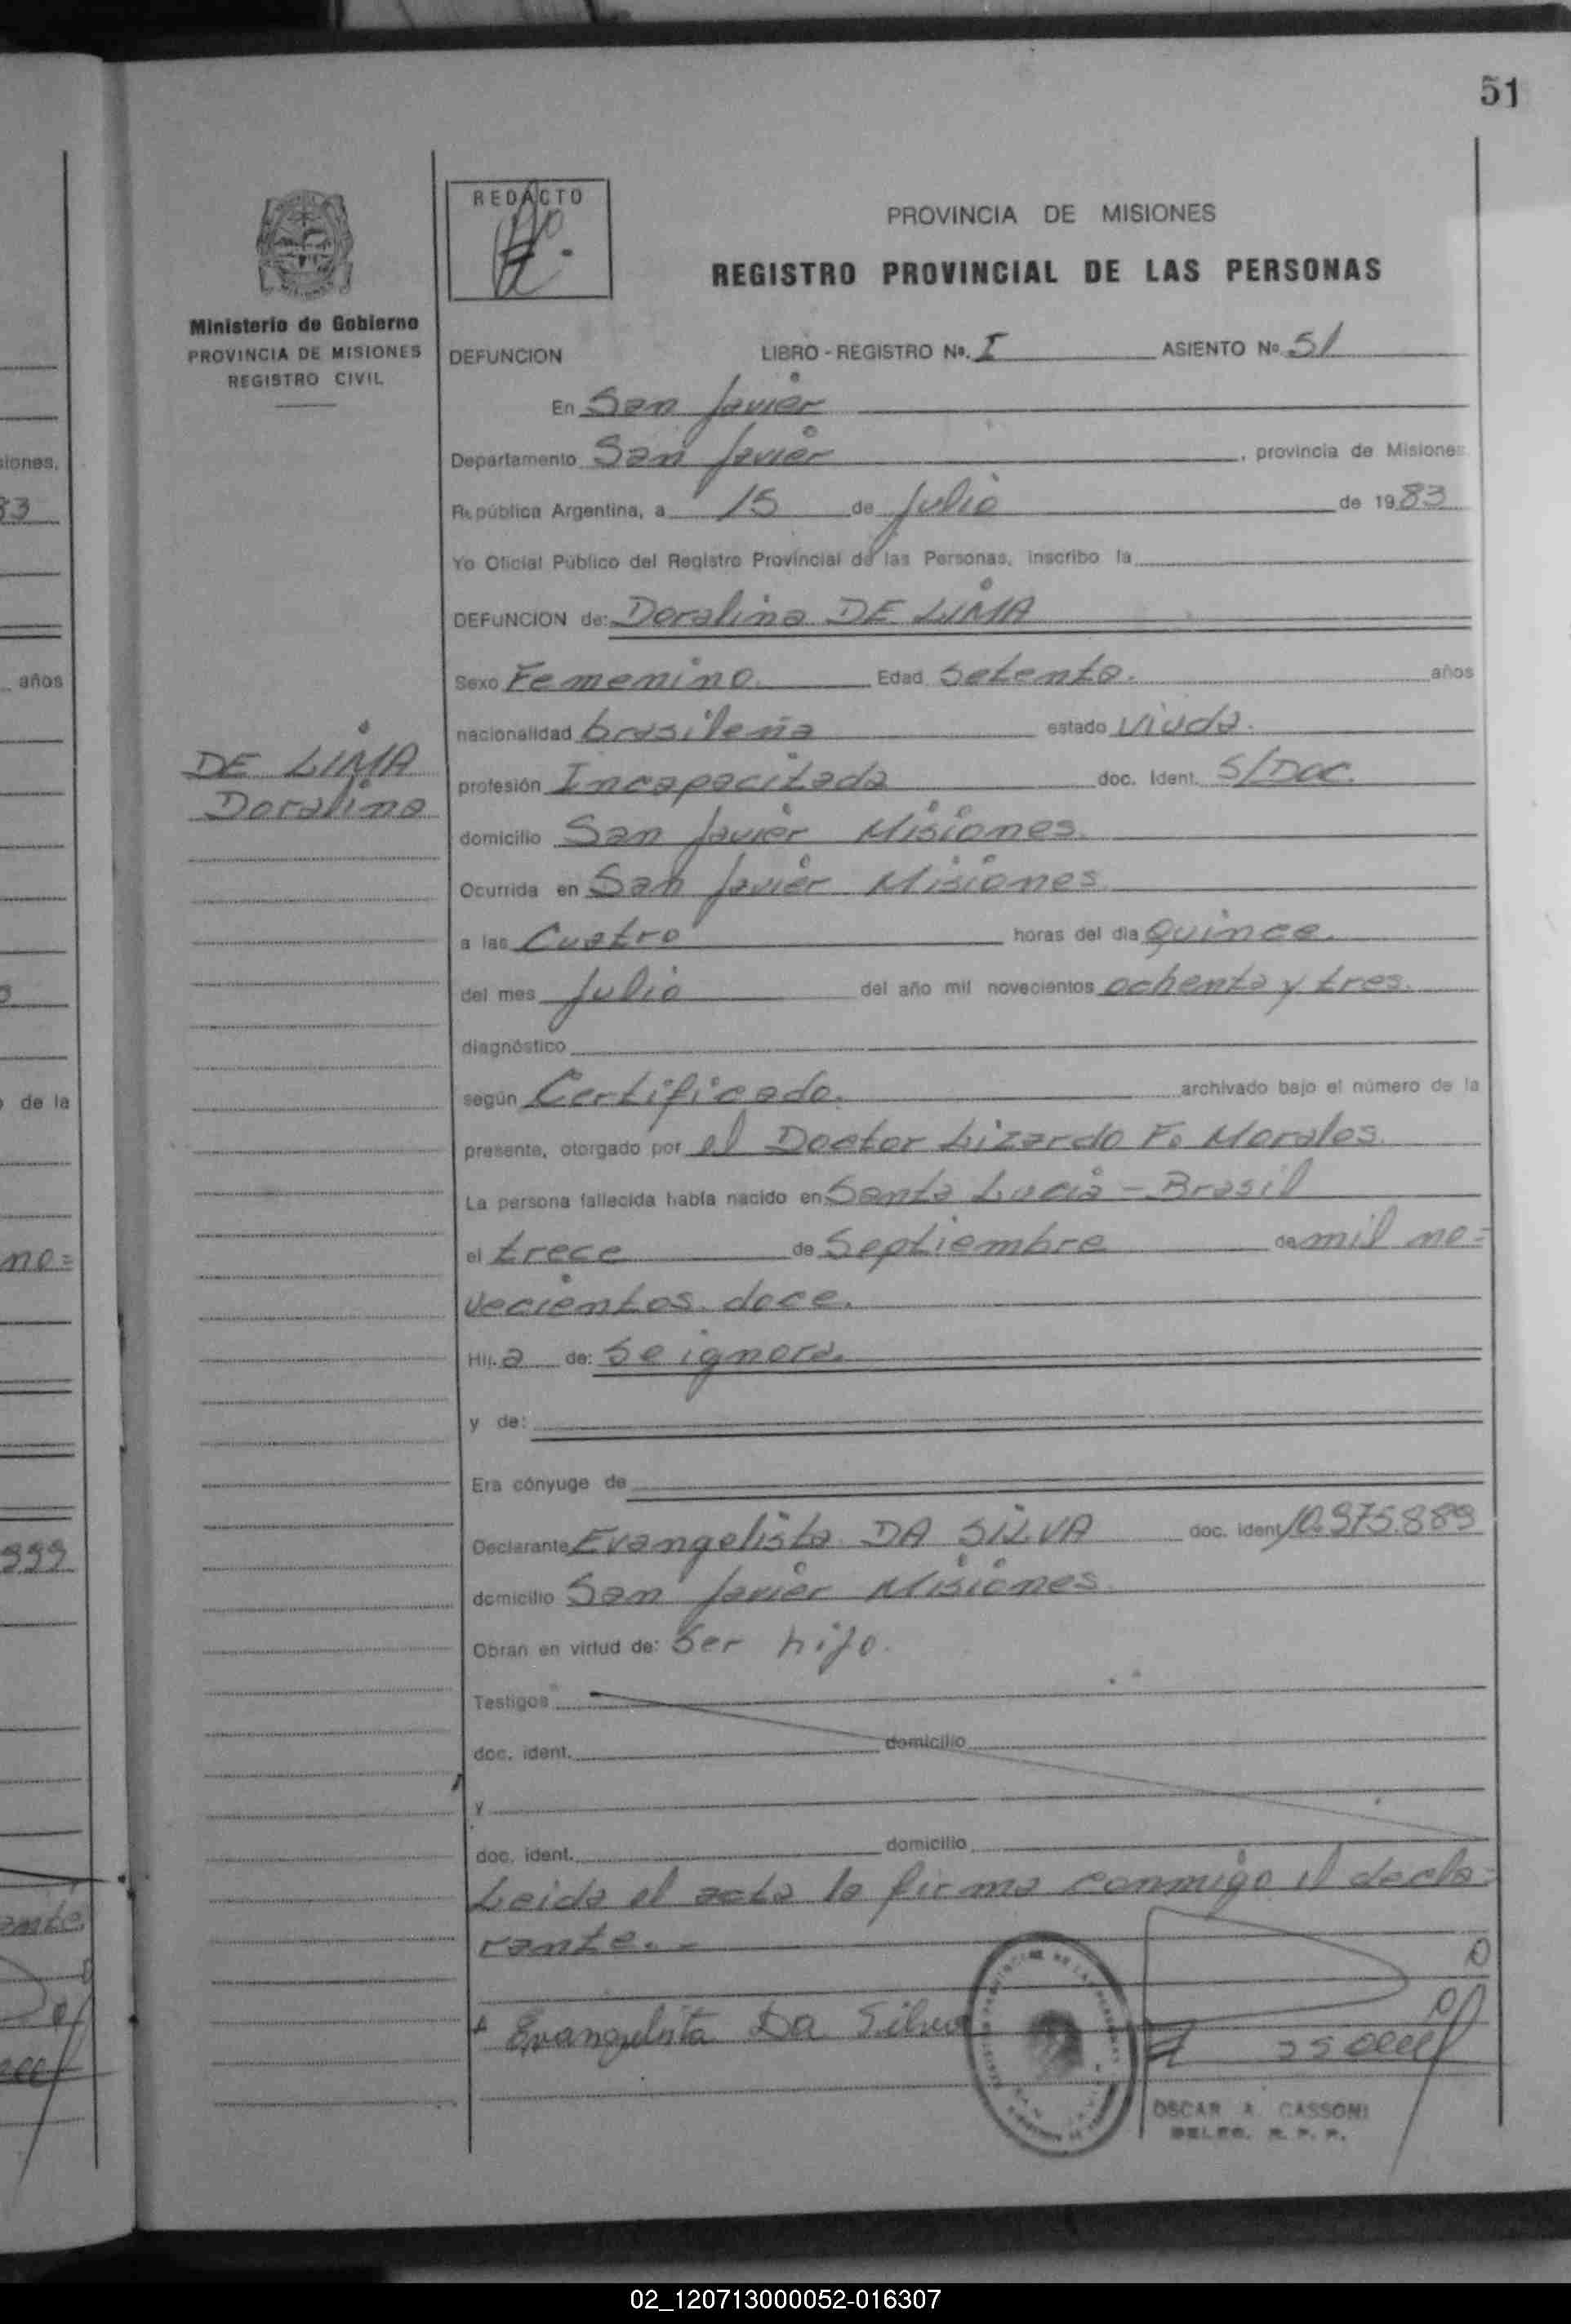 51
REDACTO
PROVINCIA DE MISIONES
REGISTRO PROVINCIAL DE LAS PERSONAS
Ministerio de Gobierno
PROVINCIA DE MISIONES
REGISTRO CIVIL
DEFUNCION LIBRO - REGISTRO Nº. I ASIENTO Nº 51
En San Javier
Departamento San Javier, provincia de Misiones
República Argentina, a 15 de Julio de 1983
Yo Oficial Público del Registro Provincial de las Personas, inscribo la
DEFUNCION de: Doralina DE LIMA
Sexo Femenino. Edad Setenta. años
nacionalidad brasileña estado Viuda.
DE LIMA
Doralina
profesión Incapacitada doc. Ident. S/Doc.
domicilio San Javier Misiones.
Ocurrida en San Javier Misiones.
a las Cuatro horas del día Quince.
del mes Julio del año mil novecientos ochenta y tres.
diagnóstico
según Certificado. archivado bajo el número de la
presente, otorgado por el Doctor Lizardo F. Morales.
La persona fallecida había nacido en Santa Lucia - Brasil
el trece de Septiembre de mil no=
vecientos doce.
Hij. a de: Se ignora.
y de:
Era cónyuge de
Declarante Evangelista DA SILVA doc. ident 10.975.889
domicilio San Javier Misiones.
Obran en virtud de: Ser hijo.
Testigos
doc. ident. domicilio
y
doc. ident. domicilio
Leida el acta la firma conmigo el decla=
rante.-
Evangelista Da Silva
OSCAR A. CASSONI
DELEG. R. P. P.
siones,
83
años
3
de la
no=
999
ante.
02_120713000052-016307